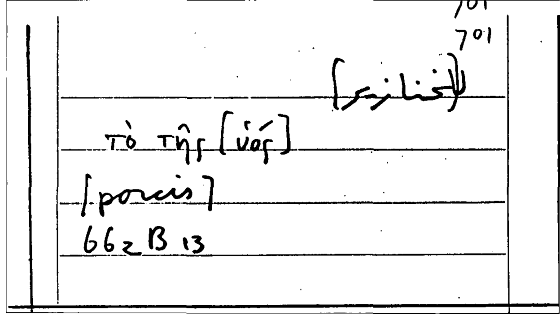 701
701
[الخنازير]
τὸ τῆς [ὑός]
[porcis]
662 B 13